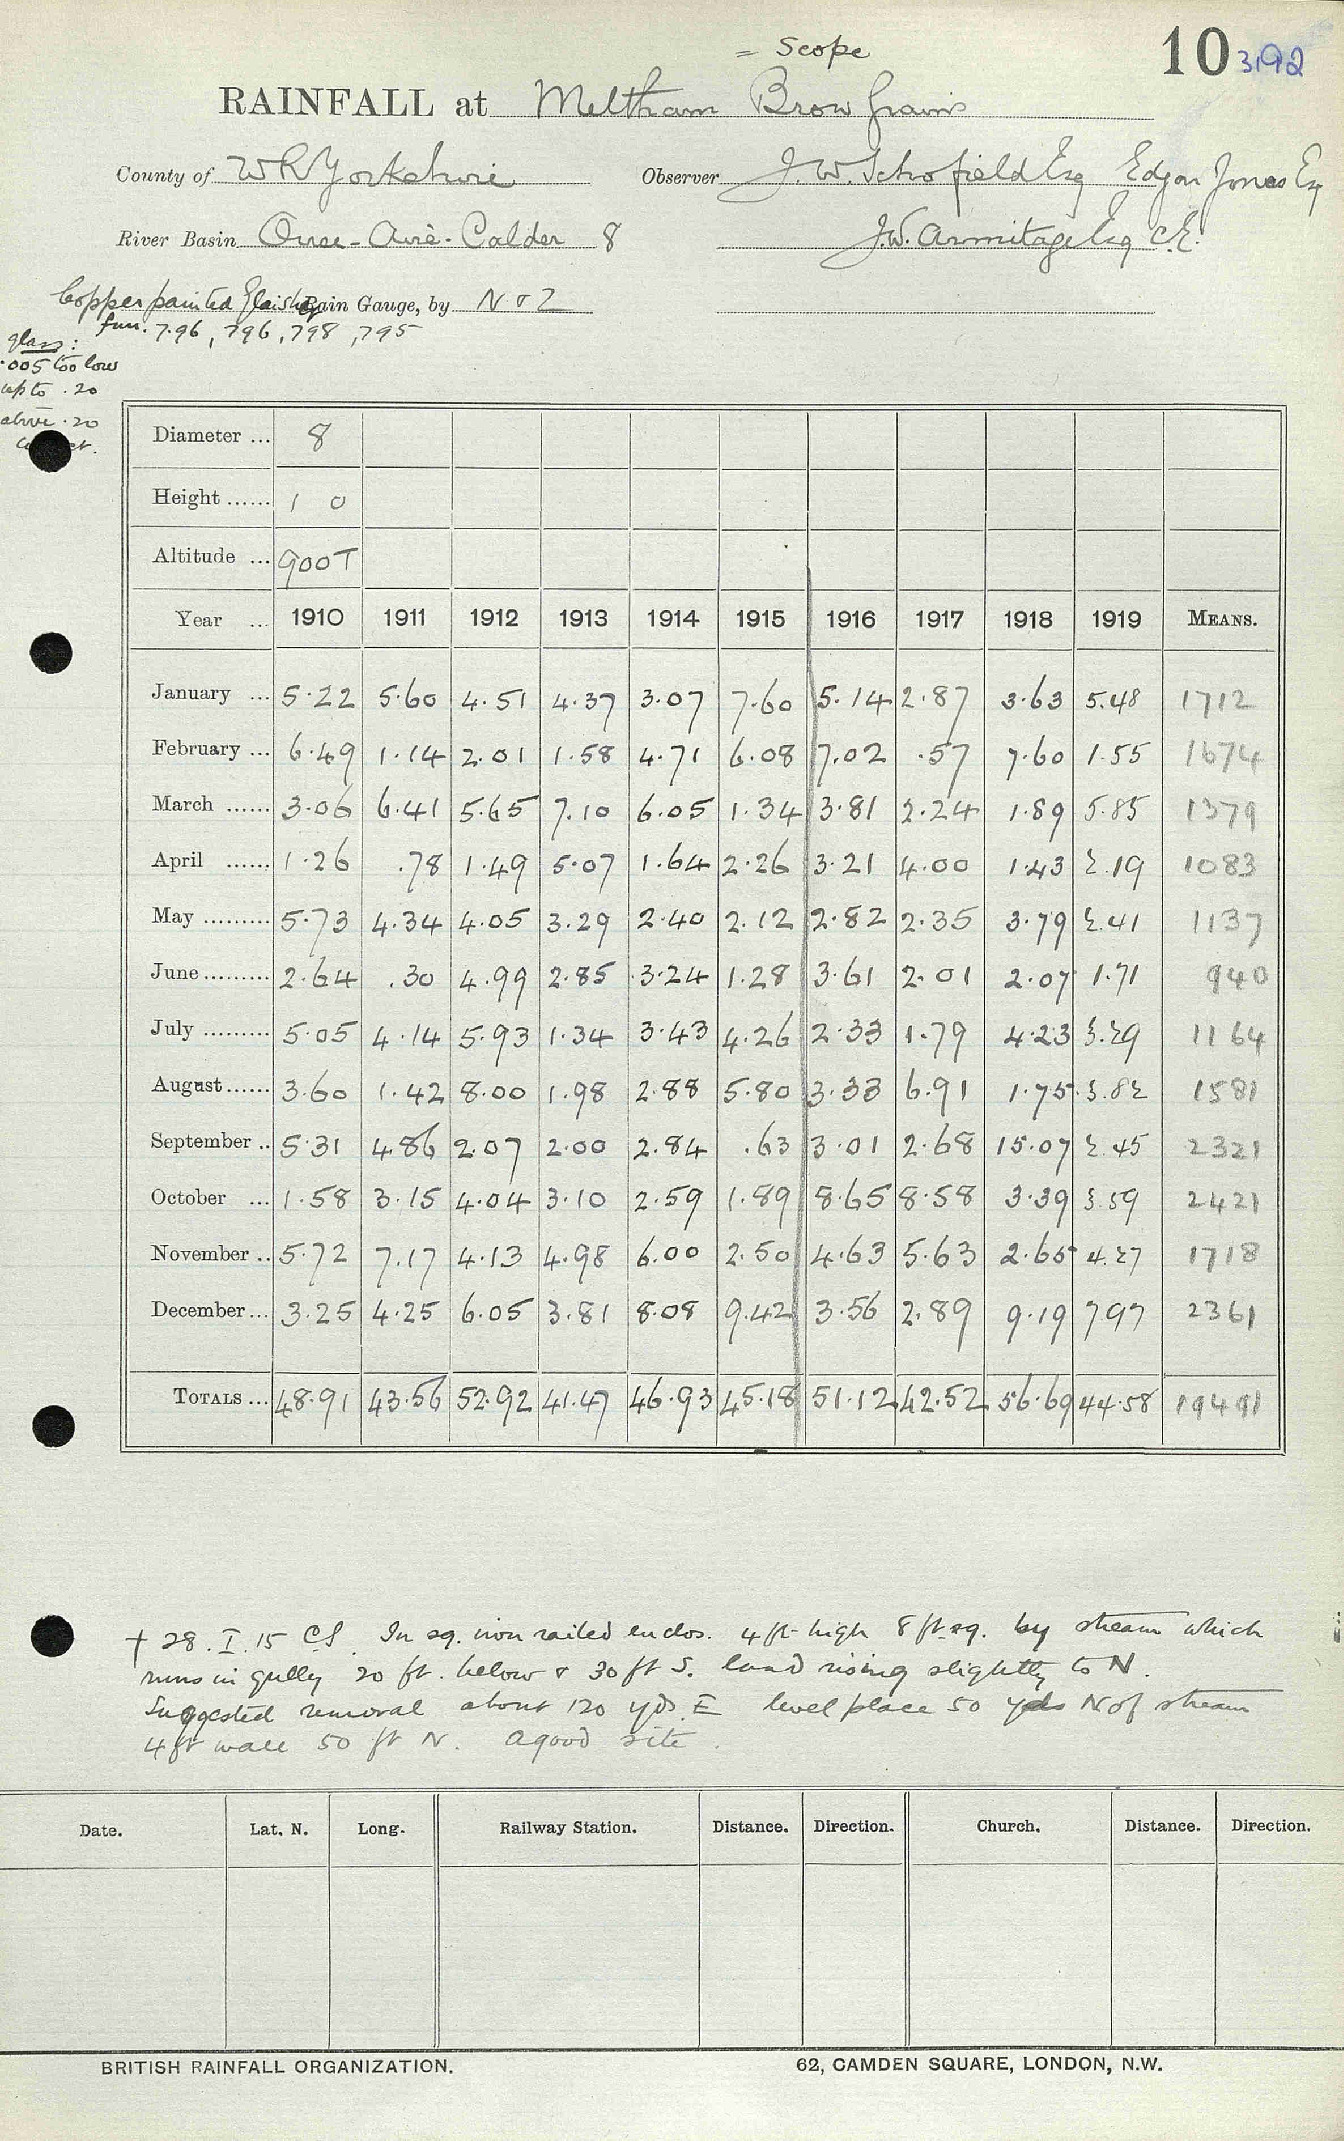 = Scope
10 3192
RAINFALL at Meltham Brow Grains
County of W R Yorkshire Observer J. W. Schofield Esq Edgar Jones Esq
River Basin Ouse - Aire - Calder 8 J.W. Armitage Esq C.E.
Copper painted Glaisher Rain Gauge, by N & Z
fun. 7.96, 796, 798, 795
glass:
.005 too low
up to .20
above .20
Diameter ... 8
Height ...... 1 0
Altitude ... 900T
Year ... 1910 1911 1912 1913 1914 1915 1916 1917 1918 1919 MEANS.
January ... 5.22 5.60 4.51 4.37 3.07 7.60 5.14 2.87 3.63 5.48 1712
February ... 6.49 1.14 2.01 1.58 4.71 6.08 7.02 .57 7.60 1.55 1674
March ...... 3.06 6.41 5.65 7.10 6.05 1.34 3.81 2.24 1.89 5.85 1379
April ...... 1.26 .78 1.49 5.07 1.64 2.26 3.21 4.00 1.43 2.19 1083
May ......... 5.73 4.34 4.05 3.29 2.40 2.12 2.82 2.35 3.79 2.41 1137
June ......... 2.64 .30 4.99 2.85 3.24 1.28 3.61 2.01 2.07 1.71 940
July ......... 5.05 4.14 5.93 1.34 3.43 4.26 2.33 1.79 4.23 3.29 1164
August ...... 3.60 1.42 8.00 1.98 2.88 5.80 3.33 6.91 1.75 3.82 1581
September .. 5.31 4.86 2.07 2.00 2.84 .63 3.01 2.68 15.07 2.45 2321
October ... 1.58 3.15 4.04 3.10 2.59 1.89 8.65 8.58 3.39 3.59 2421
November .. 5.72 7.17 4.13 4.98 6.00 2.50 4.63 5.63 2.65 4.27 1718
December ... 3.25 4.25 6.05 3.81 8.08 9.42 3.56 2.89 9.19 7.97 2361
TOTALS ... 48.91 43.56 52.92 41.47 46.93 45.18 51.12 42.52 56.69 44.58 19491
† 28. I. 15 CS. In sq. iron railed enclos. 4 ft high 8 ft sq. by stream which
runs in gulley 20 ft. below & 30 ft S. land rising slightly to N.
Suggested removal about 120 yds. E level place 50 yds N of stream
4 ft wall 50 ft N. A good site.
Date. Lat. N. Long. Railway Station. Distance. Direction. Church. Distance. Direction.
BRITISH RAINFALL ORGANIZATION. 62, CAMDEN SQUARE, LONDON, N.W.